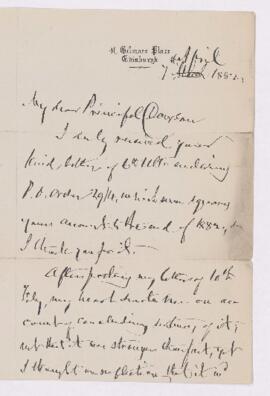 Gilmore Place
Edinburgh
April
7 March 1883
My dear Principal Dawson
I duly received your
kind letter of 6th Ulto enclosing
P.O. Order 29/4, which squares
your account to the end of 1882, &
I thank you for it.
After posting my letter of 10th
Feby, my heart smote me on ac
count of concluding sentence of it;
not that it was stronger than fact, yet
I thought on reflection that it wd